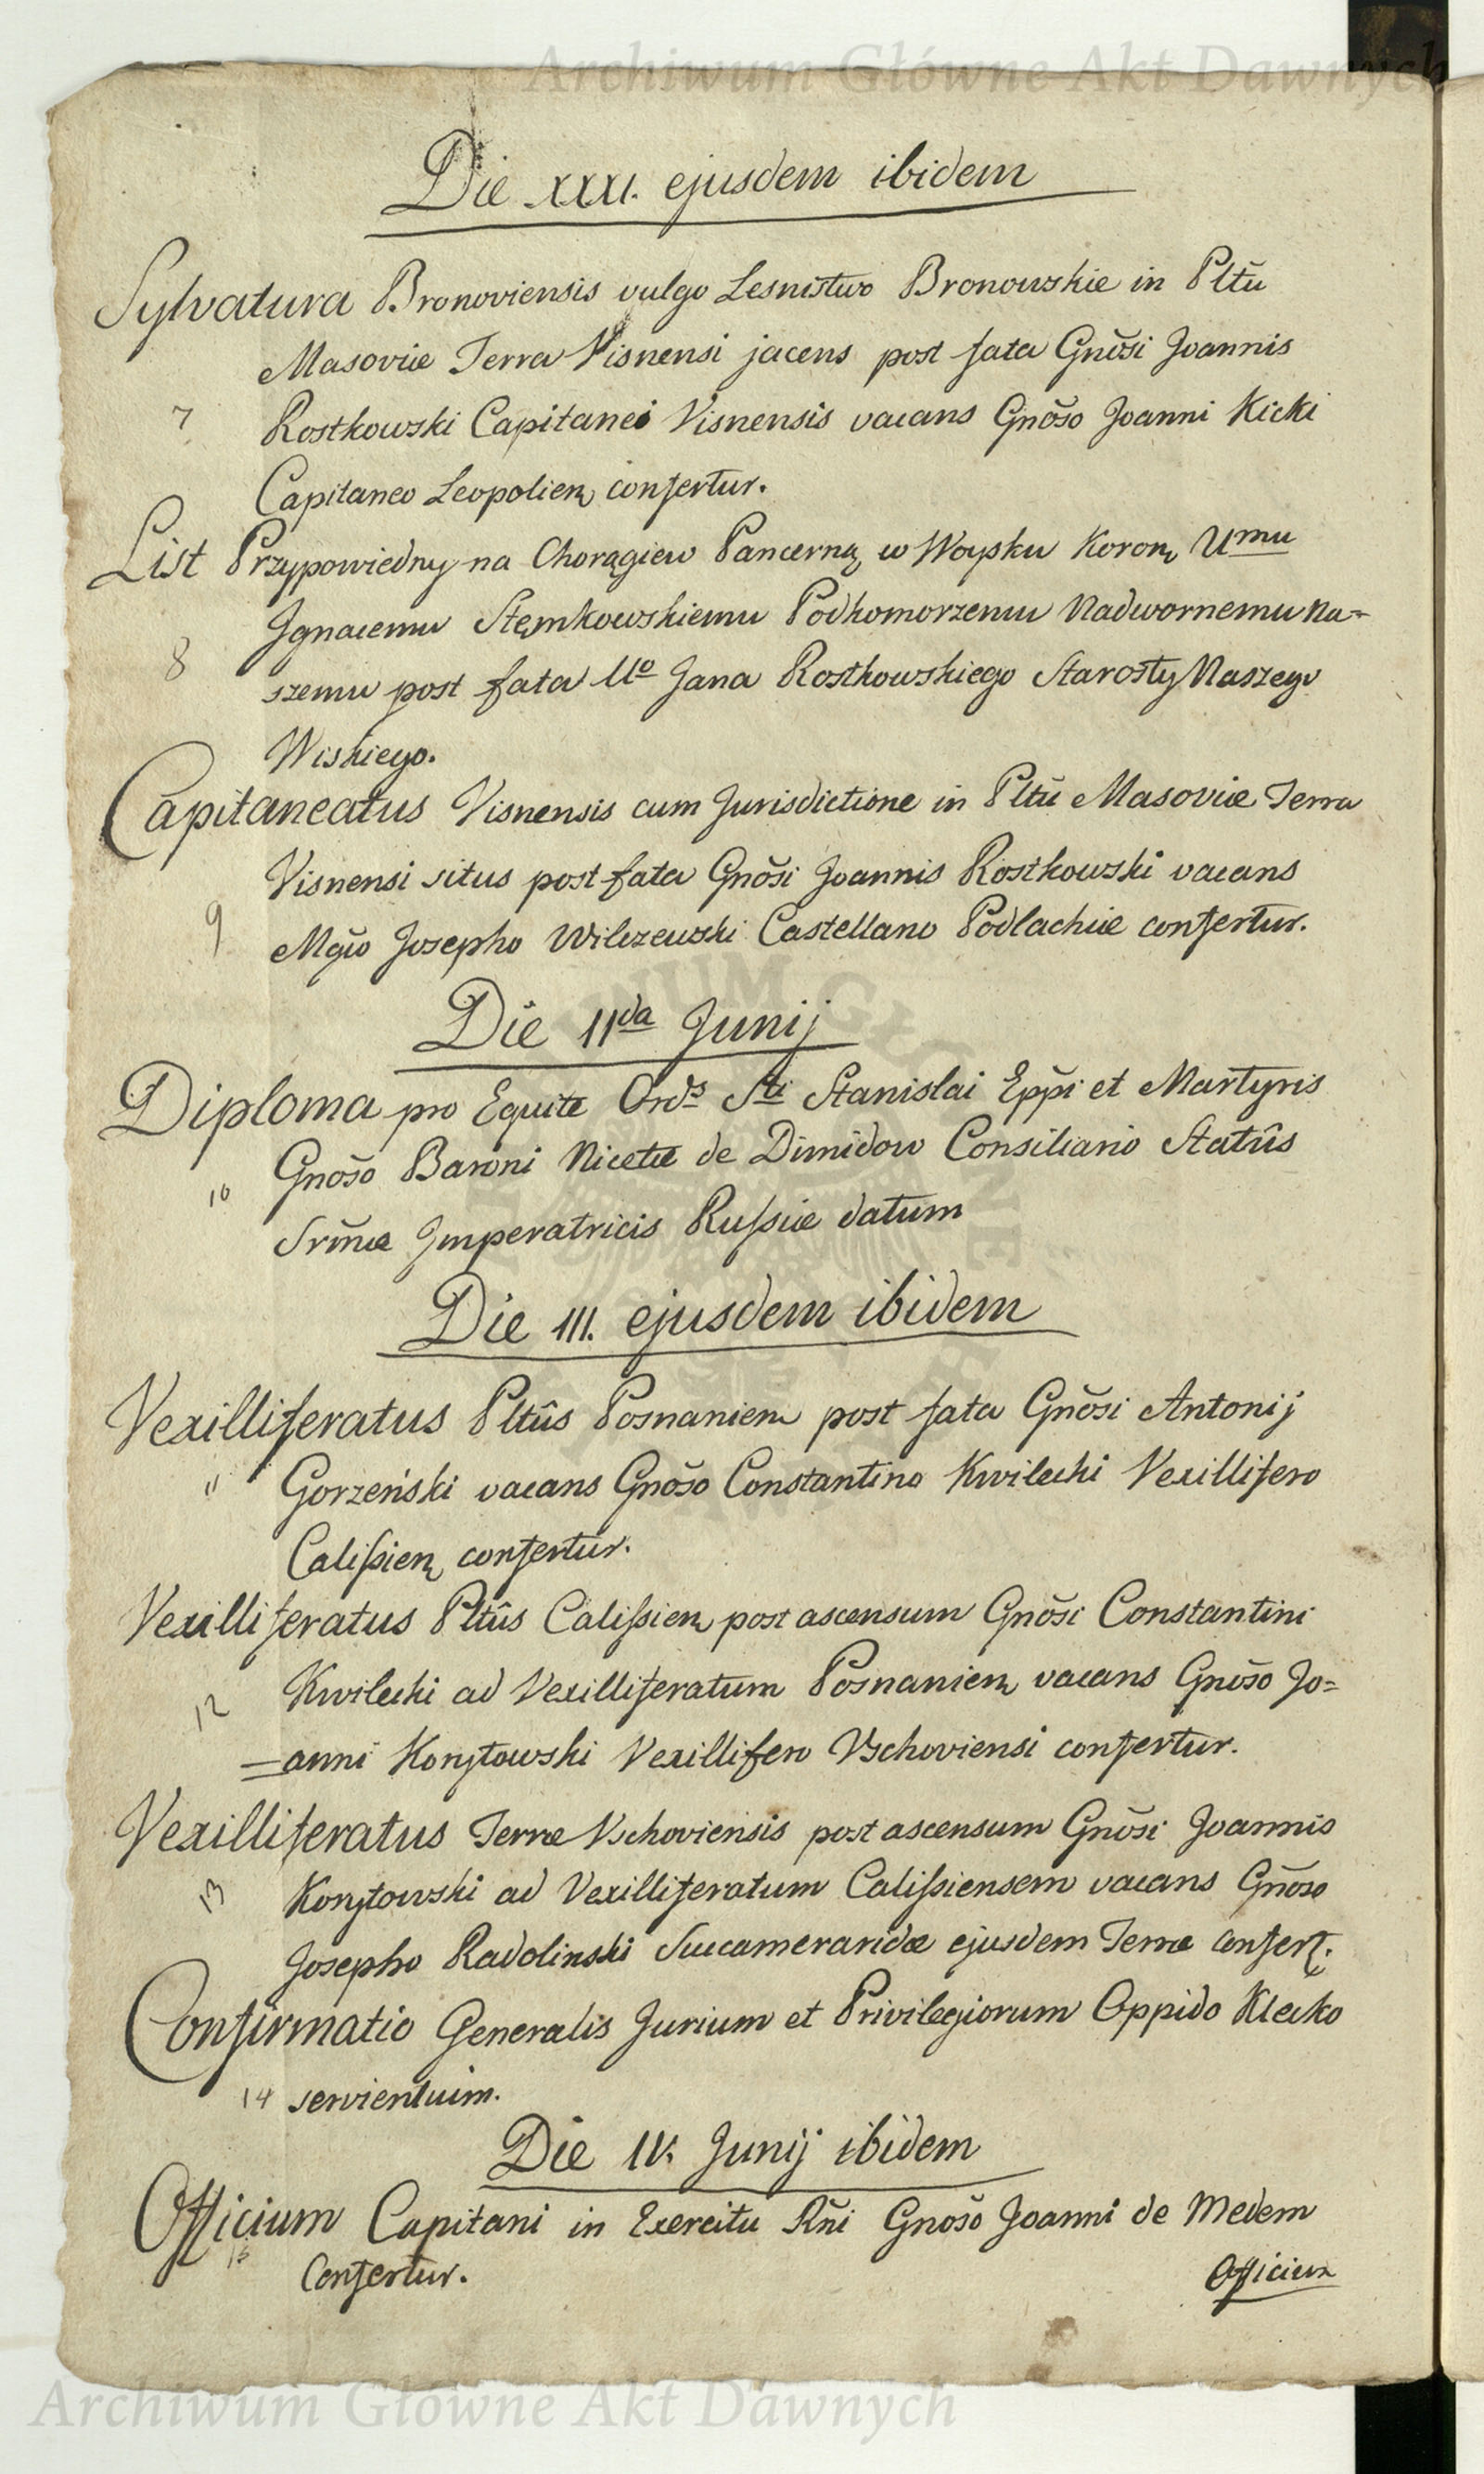 Archiwum Główne Akt Dawnych
Die XXXI. ejusdem ibidem
Sylvatura Bronoviensis vulgo Lesnistwo Bronowskie in Pltũ
Masoviæ Terra Visnensi jacens post fata Gnõsi Joannis
7 Rostkowski Capitanei Visnensis vacans Gnõso Joanni Kicki
Capitaneo Leopolien confertur.
List Przypowiedny na Chorągiew Pancerną w Woysku Koron Umu
Jgnacemu Stęmkowskiemu Podkomorzemu Nadwornemu Na=
8 szemu post fata Uo Jana Rostkowskiego Starosty Naszego
Wiskiego.
Capitaneatus Visnensis cum Jurisdictione in Pltũ Masoviæ Terra
Visnensi situs post fata Gnõsi Joannis Rostkowski vacans
9 Mgõ Josepho Wilczewski Castellano Podlachiæ confertur.
Die IIda Junij
Diploma pro Equite Ords Sti Stanislai Eppĩ et Martyris
10 Gnõso Baroni Nicetæ de Dimidow Consiliario Statûs
Srmæ Jmperatricis Russiæ datum
Die III. ejusdem ibidem
Vexilliferatus Pltûs Posnanien post fata Gnõsi Antonij
11 Gorzeński vacans Gnõso Constantino Kwilecki Vexillifero
Calissien confertur.
Vexilliferatus Pltûs Calissien post ascensum Gnõsi Constantini
12 Kwilecki ad Vexilliferatum Posnanien vacans Gnõso Jo=
=anni Konytowski Vexillifero Vschoviensi confertur.
Vexilliferatus Terræ Vschoviensis post ascensum Gnõsi Joannis
13 Konytowski ad Vexilliferatum Calissiensem vacans Gnõso
Josepho Radolinski Succameraridæ ejusdem Terræ confert.
Confirmatio Generalis Jurium et Privilegiorum Oppido Klecko
14 servientium.
Die IV. Junij ibidem
Officium Capitani in Exercitu Rñi Gnõso Joanni de Medem
15 Confertur.
Officium
Archiwum Główne Akt Dawnych